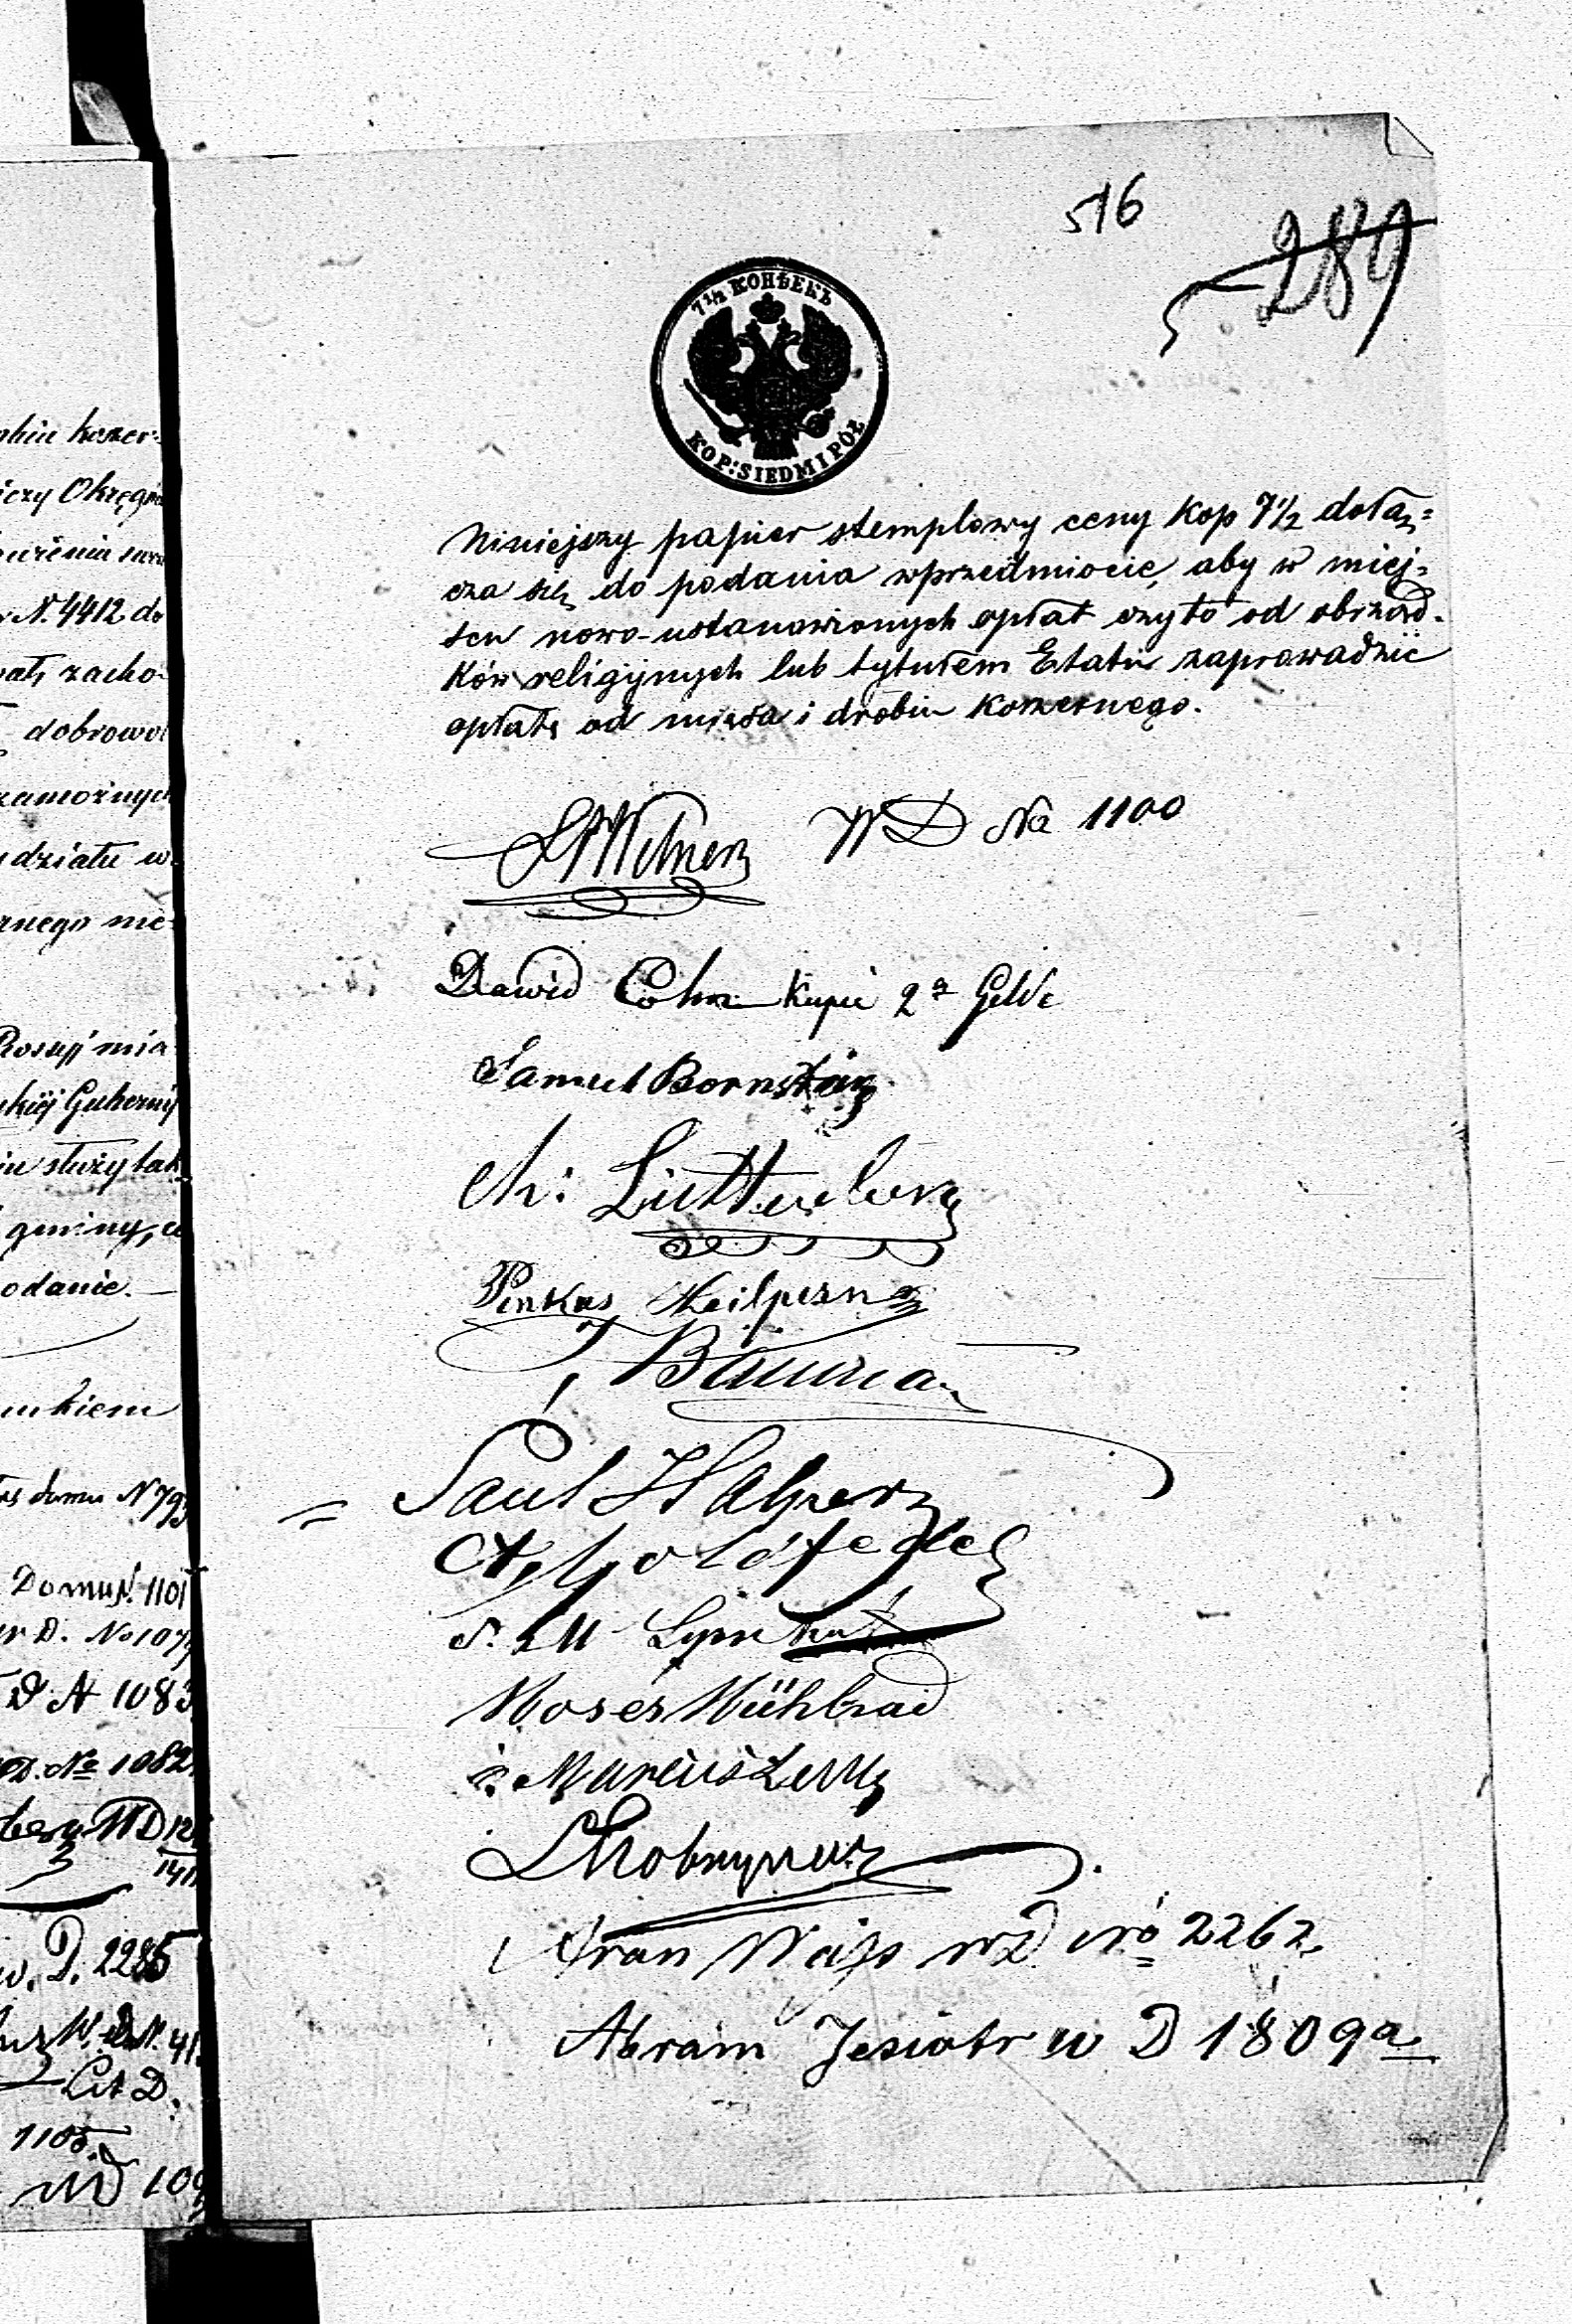 phiu koszer-
iczy Okręgu
N. 4412 do
zacho-
dobrowol
zamożnych
udziału w
rnego nie-
Rossyi mia
kiej Gubernij
służy tak
gminy, a
odanie.
domu N 793
Domu N. 1101
D. No 107
D N 1083
D. No 1082
WD
D. 2285
W. N. 41
Lit D.
1105
WD 109
516
5 289
7 1/2 КОПѢЕКЪ
KOP: SIEDM I PÓŁ
Niniejszy papier stemplowy ceny Kop 7 1/2 dołą-
cza się do podania w przedmiocie, aby w miej-
sce nowo-ustanowionych opłat czy to od obrząd-
ków religijnych lub tytułem Etatu zaprowadzić
opłatę od mięsa i drobiu koszernego.
WD No 1100
Dawid Cohn Kupiec 2 Gilde
Samuel Bornstein
Ch:
Pinkus Heilpern
J Bauman
Saul Halpern
A. Goldfeder
S. M
Moses Mühlrad
Marcus
Aron Wajs WD No 2262
Abram Jesiotr w D 1809a